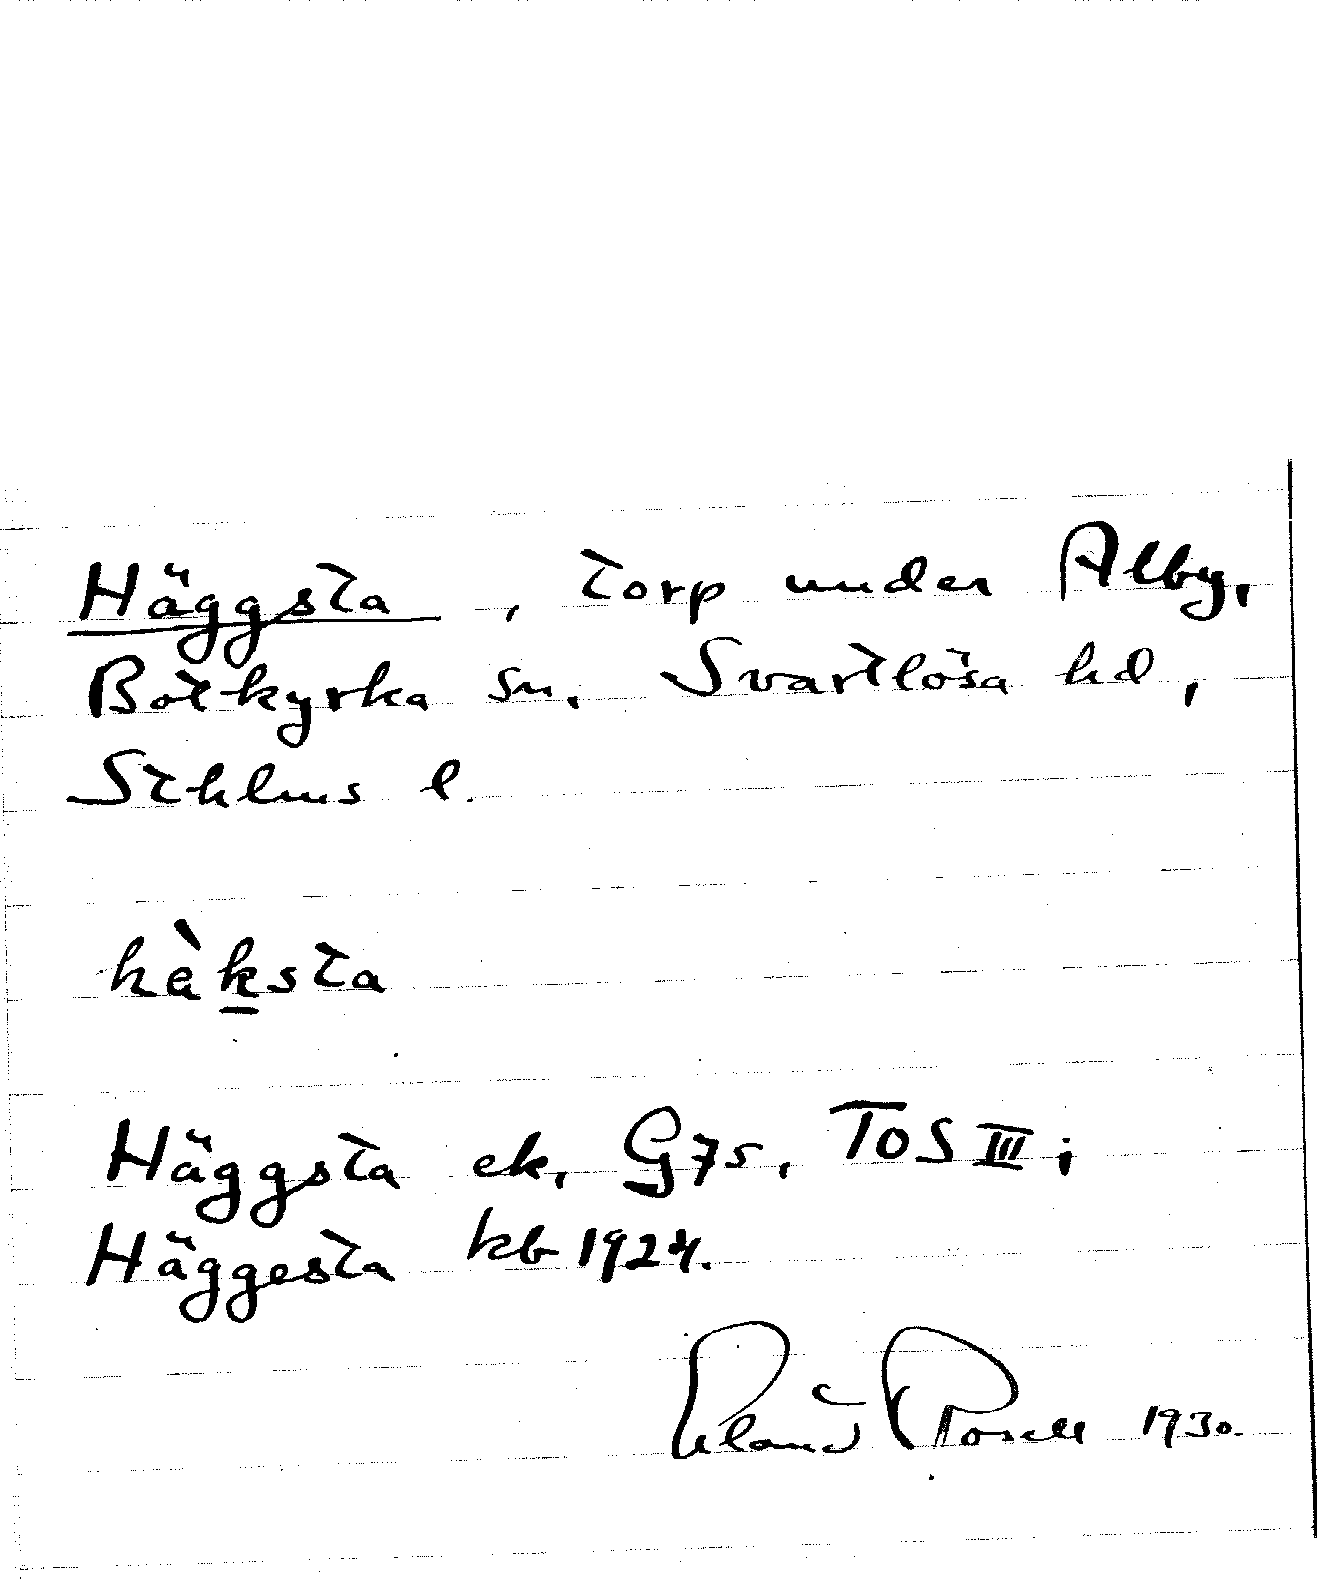 Häggsta, torp under Alby,
Botkyrka sn. Svartlösa hd,
Sthlms l.
hàksta
Häggsta ek, G7s, TOS III;
Häggesta kb 1924.
Erland Rosell 1930.